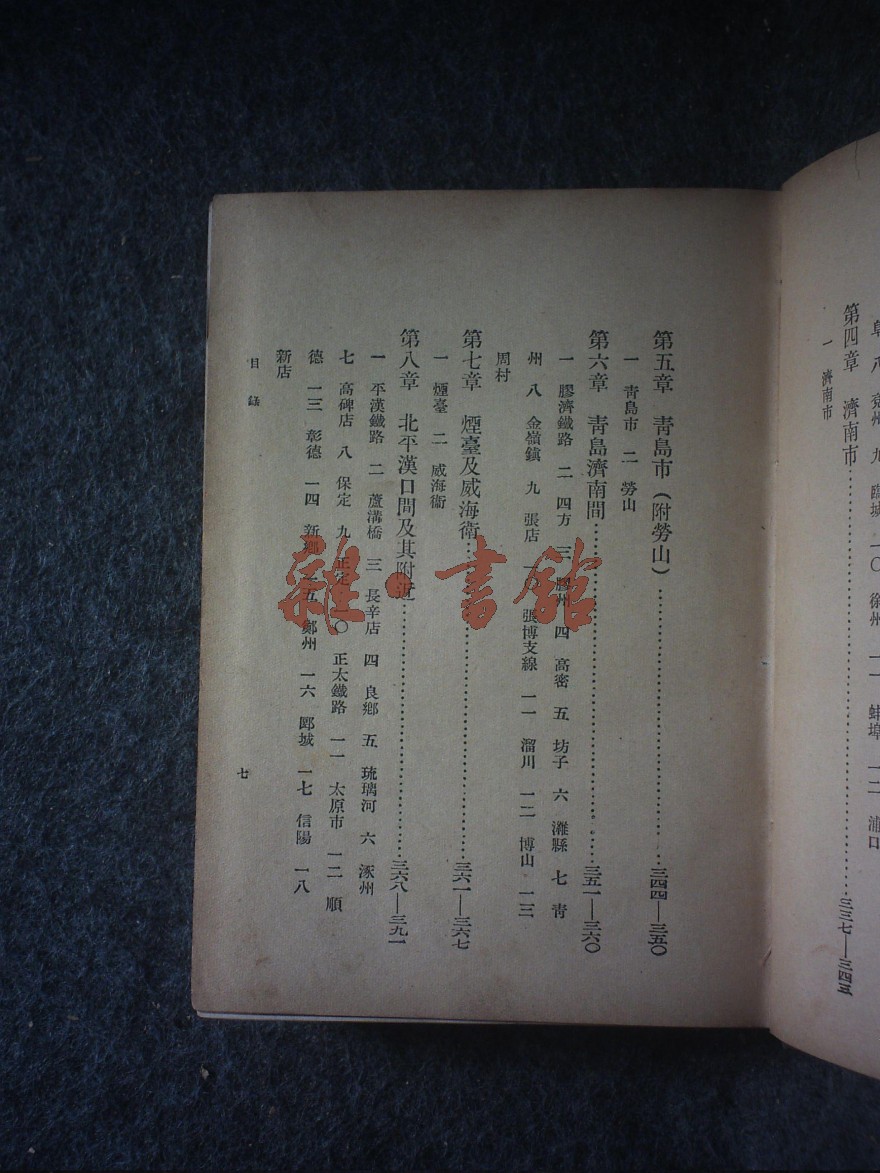 阜 八 兗州 九 臨城 一〇 徐州 一一 蚌埠 一二 浦口
第四章 濟南市……三三七—三四三
一 濟南市
第五章 青島市（附勞山）……三四四—三五〇
一 青島市 二 勞山
第六章 青島濟南間……三五一—三六〇
一 膠濟鐵路 二 四方 三 膠州 四 高密 五 坊子 六 濰縣 七 青
州 八 金嶺鎮 九 張店 一〇 張博支線 一一 溜川 一二 博山 一三
周村
第七章 煙臺及威海衛……三六一—三六七
一 煙臺 二 威海衞
第八章 北平漢口間及其附近……三六八—三九一
一 平漢鐵路 二 蘆溝橋 三 長辛店 四 良鄉 五 琉璃河 六 涿州
七 高碑店 八 保定 九 正定 一〇 正太鐵路 一一 太原市 一二 順
德 一三 彰德 一四 新鄉 一五 鄭州 一六 郾城 一七 信陽 一八
新店
目錄
七
雜·書館